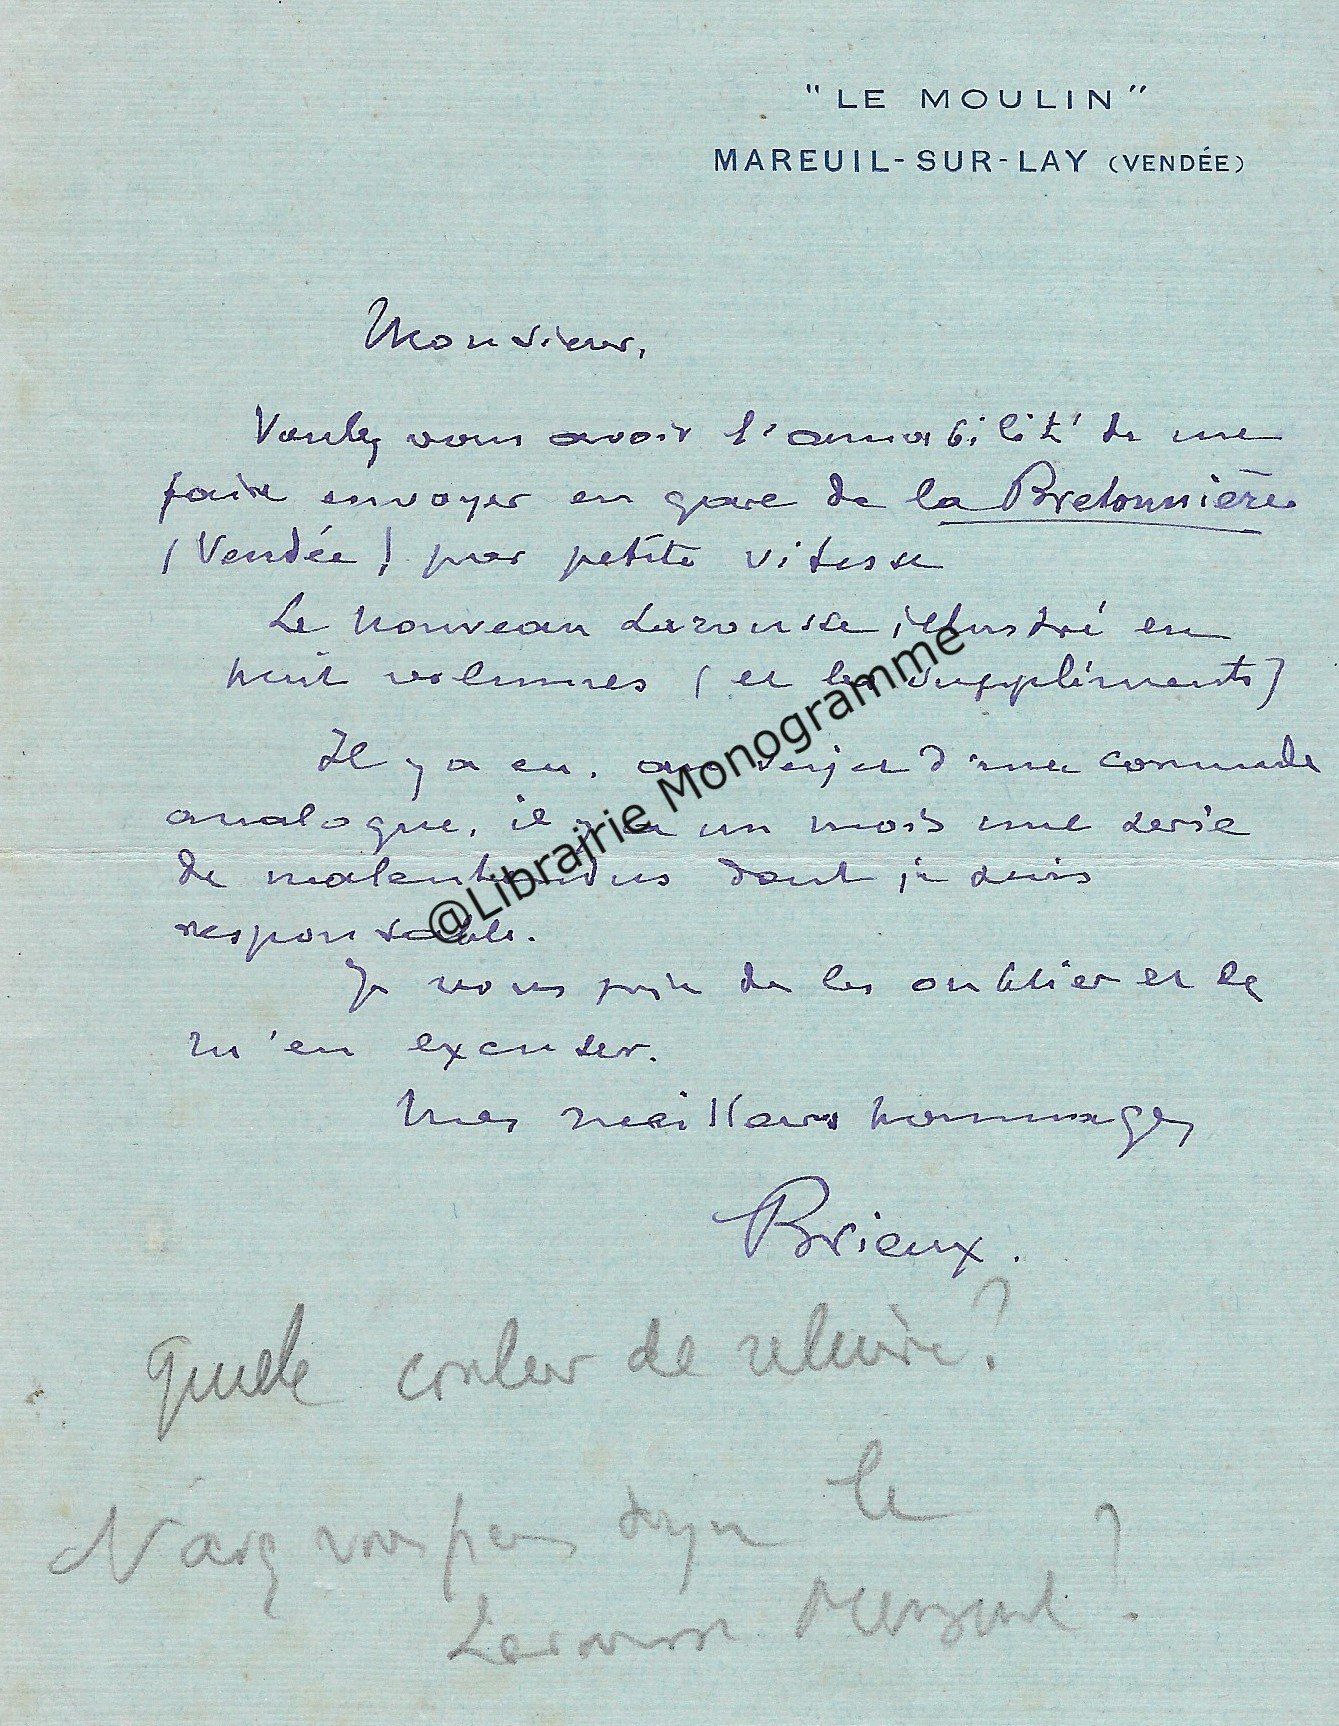 "LE MOULIN"
MAREUIL-SUR-LAY (VENDÉE)
Monsieur,
Voulez vous avoir l'amabilité de me
faire envoyer en gare de la Bretonnière
(Vendée) par petite vitesse
Le Nouveau Larousse illustré en
huit volumes (et les suppléments)
Il y a eu, au sujet d'une commande
analogue, il y a un mois une série
de malentendus dont je suis
responsable.
Je vous prie de les oublier et de
m'en excuser.
Mes meilleurs hommages
Brieux.
@Librairie Monogramme
Quelle couleur de reliure?
N'avez vous pas déjà le
Larousse Mensuel?